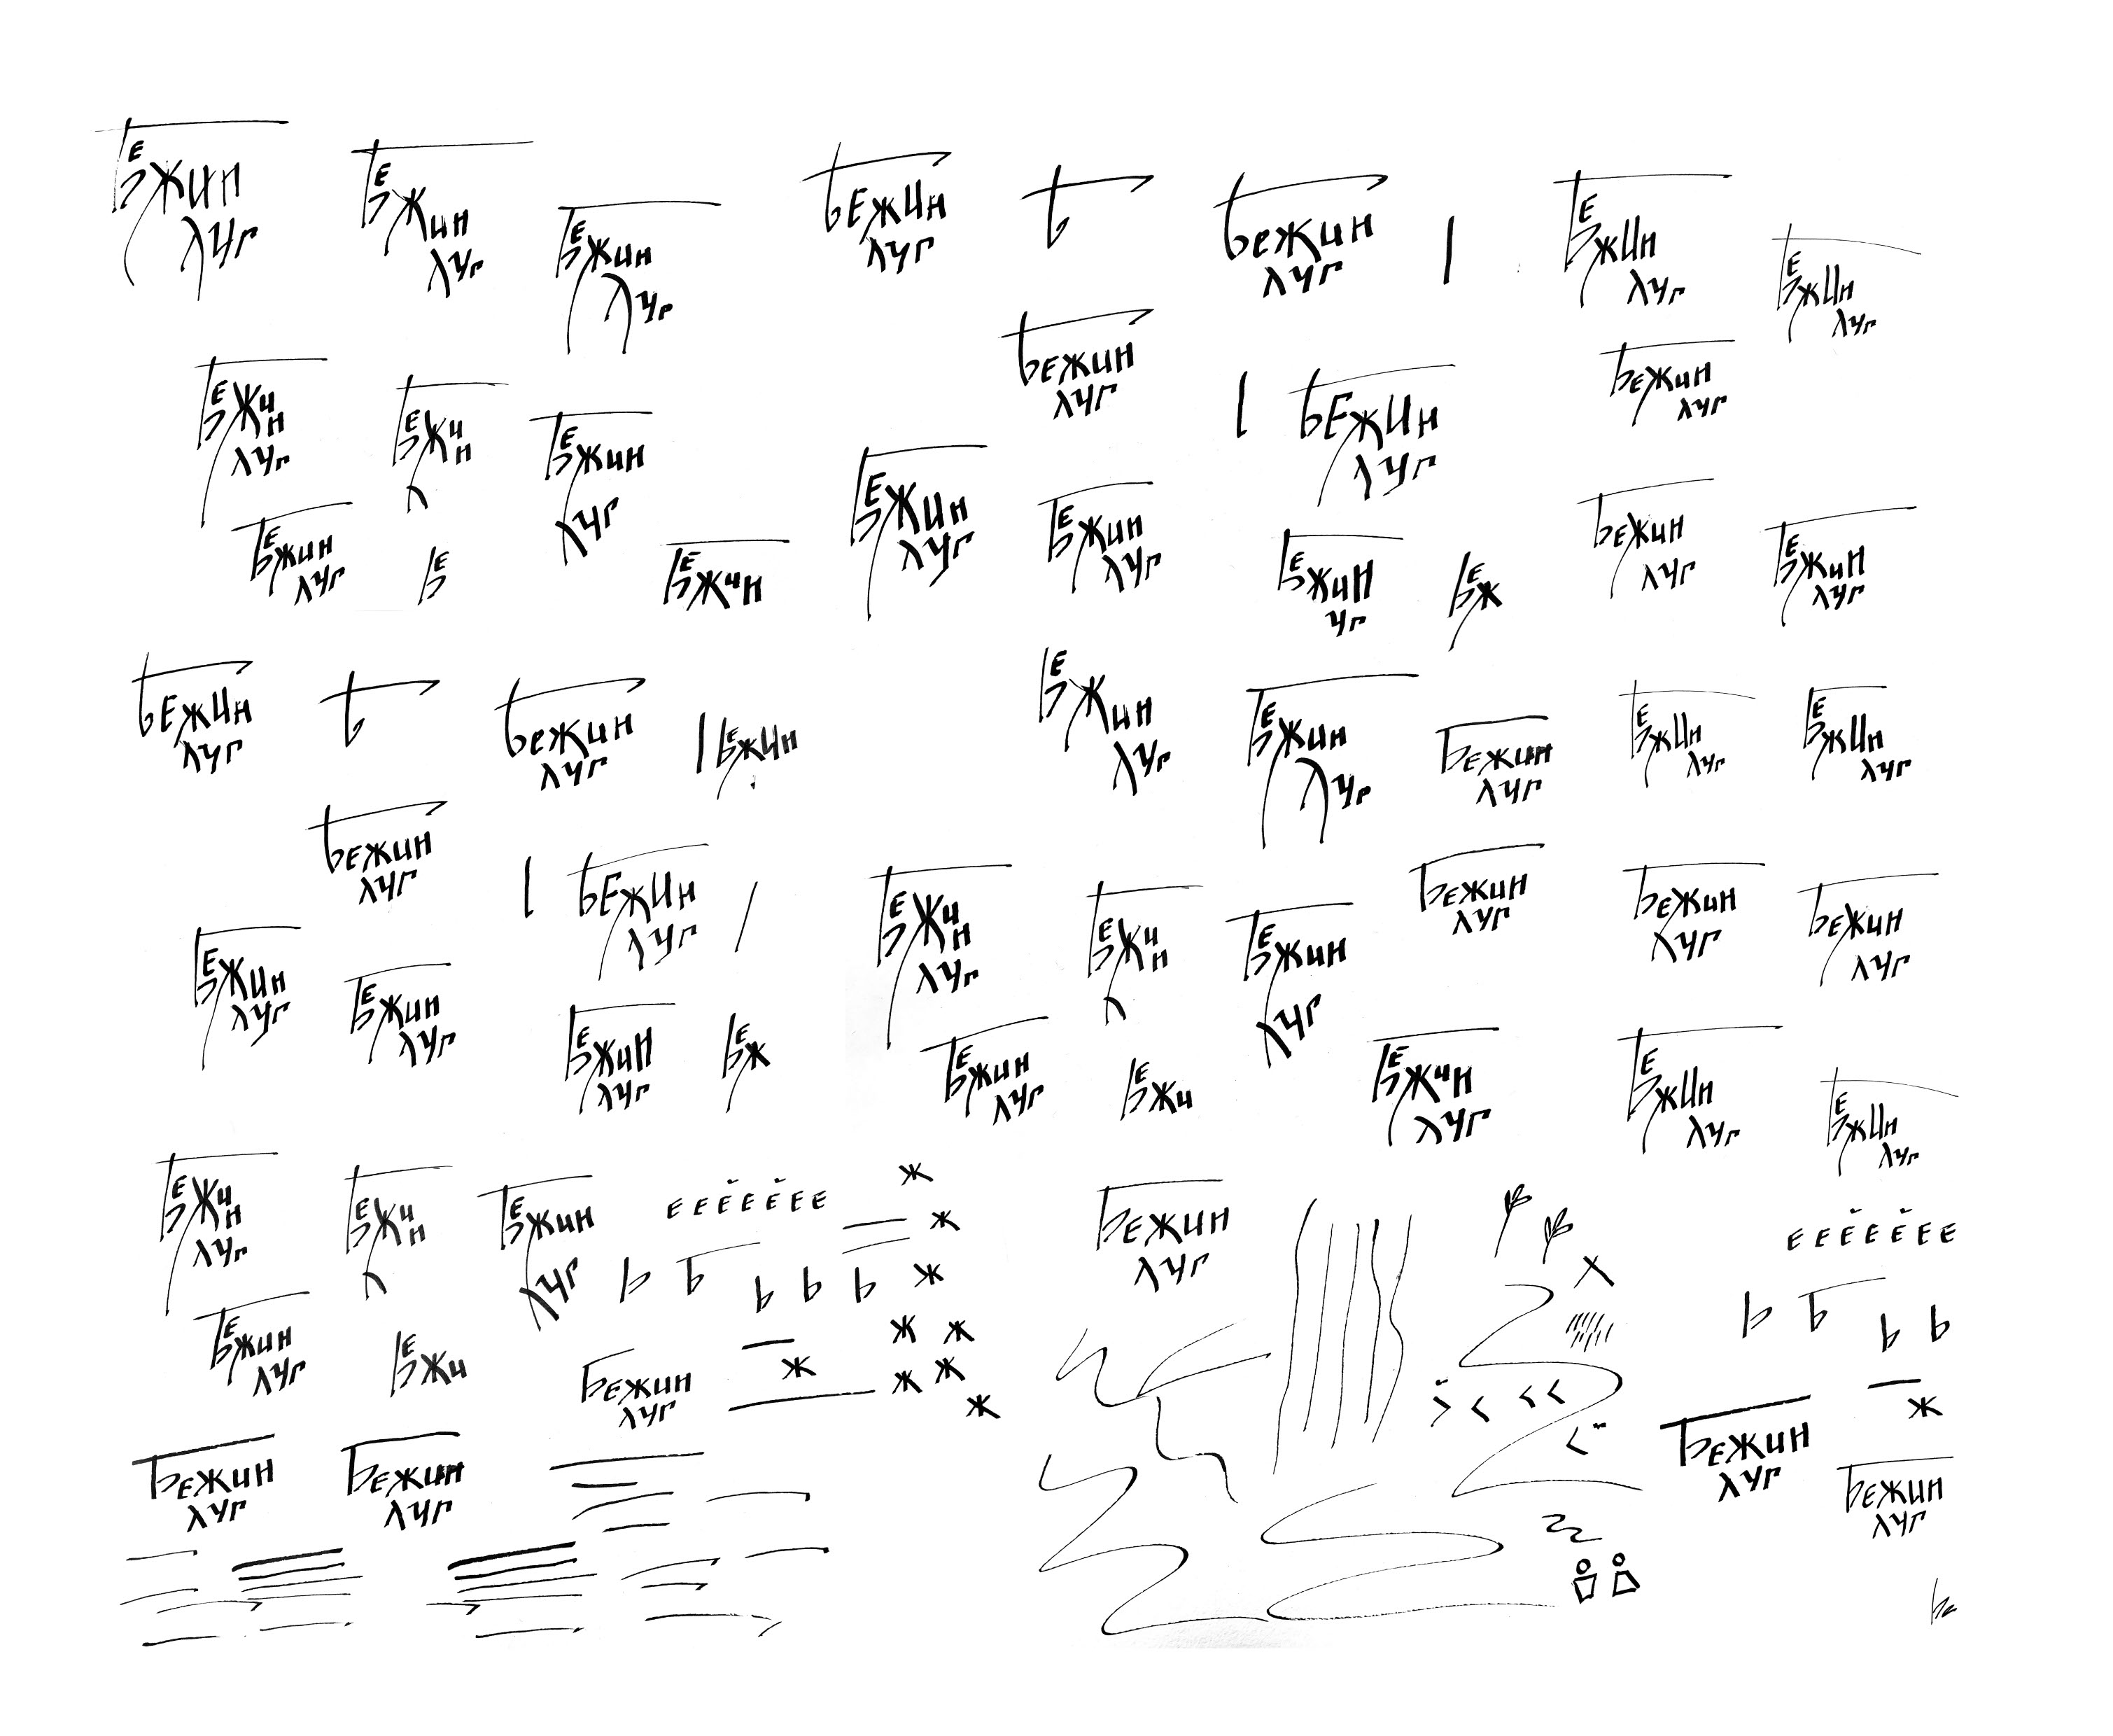 Бежин
луг
Бежин
луг
Бежин
луг
Бежин
луг
Б
Бежин
луг
Бежин
луг
Бежин
луг
Бежин
луг
Бежин
луг
Бежин
луг
Бежин
луг
Бежин
л
Бежин
луг
Бежин
луг
Бежин
луг
Бежин
луг
Бежин
луг
Бежин
луг
Бе
Бежин
Бежин
уг
Беж
Бежин
луг
Бежин
луг
Бежин
луг
Б
Бежин
луг
Бежин
Бежин
луг
Бежин
луг
Бежин
луг
Бежин
луг
Бежин
луг
Бежин
луг
Бежин
луг
Бежин
луг
Бежин
луг
Бежин
л
Бежин
луг
Бежин
луг
Бежин
луг
Бежин
луг
Бежин
луг
Бежин
луг
Бежин
луг
Беж
Бежин
луг
Бежи
Бежин
луг
Бежин
луг
Бежин
луг
Бежин
луг
Бежин
л
Бежин
луг
Е Е Ё Е Ё Е Е
Ж
Ж
Ь Б Ь Ь Ь Ж
Бежин
луг
Е Е Ё Е Ё Е Е
Ь Б Ь Ь
Бежин
луг
Бежи
Бежин
луг
Ж
Ж Ж
Ж Ж
Ж
Ж
Бежин
луг
Бежин
луг
Бежин
луг
Бежин
луг